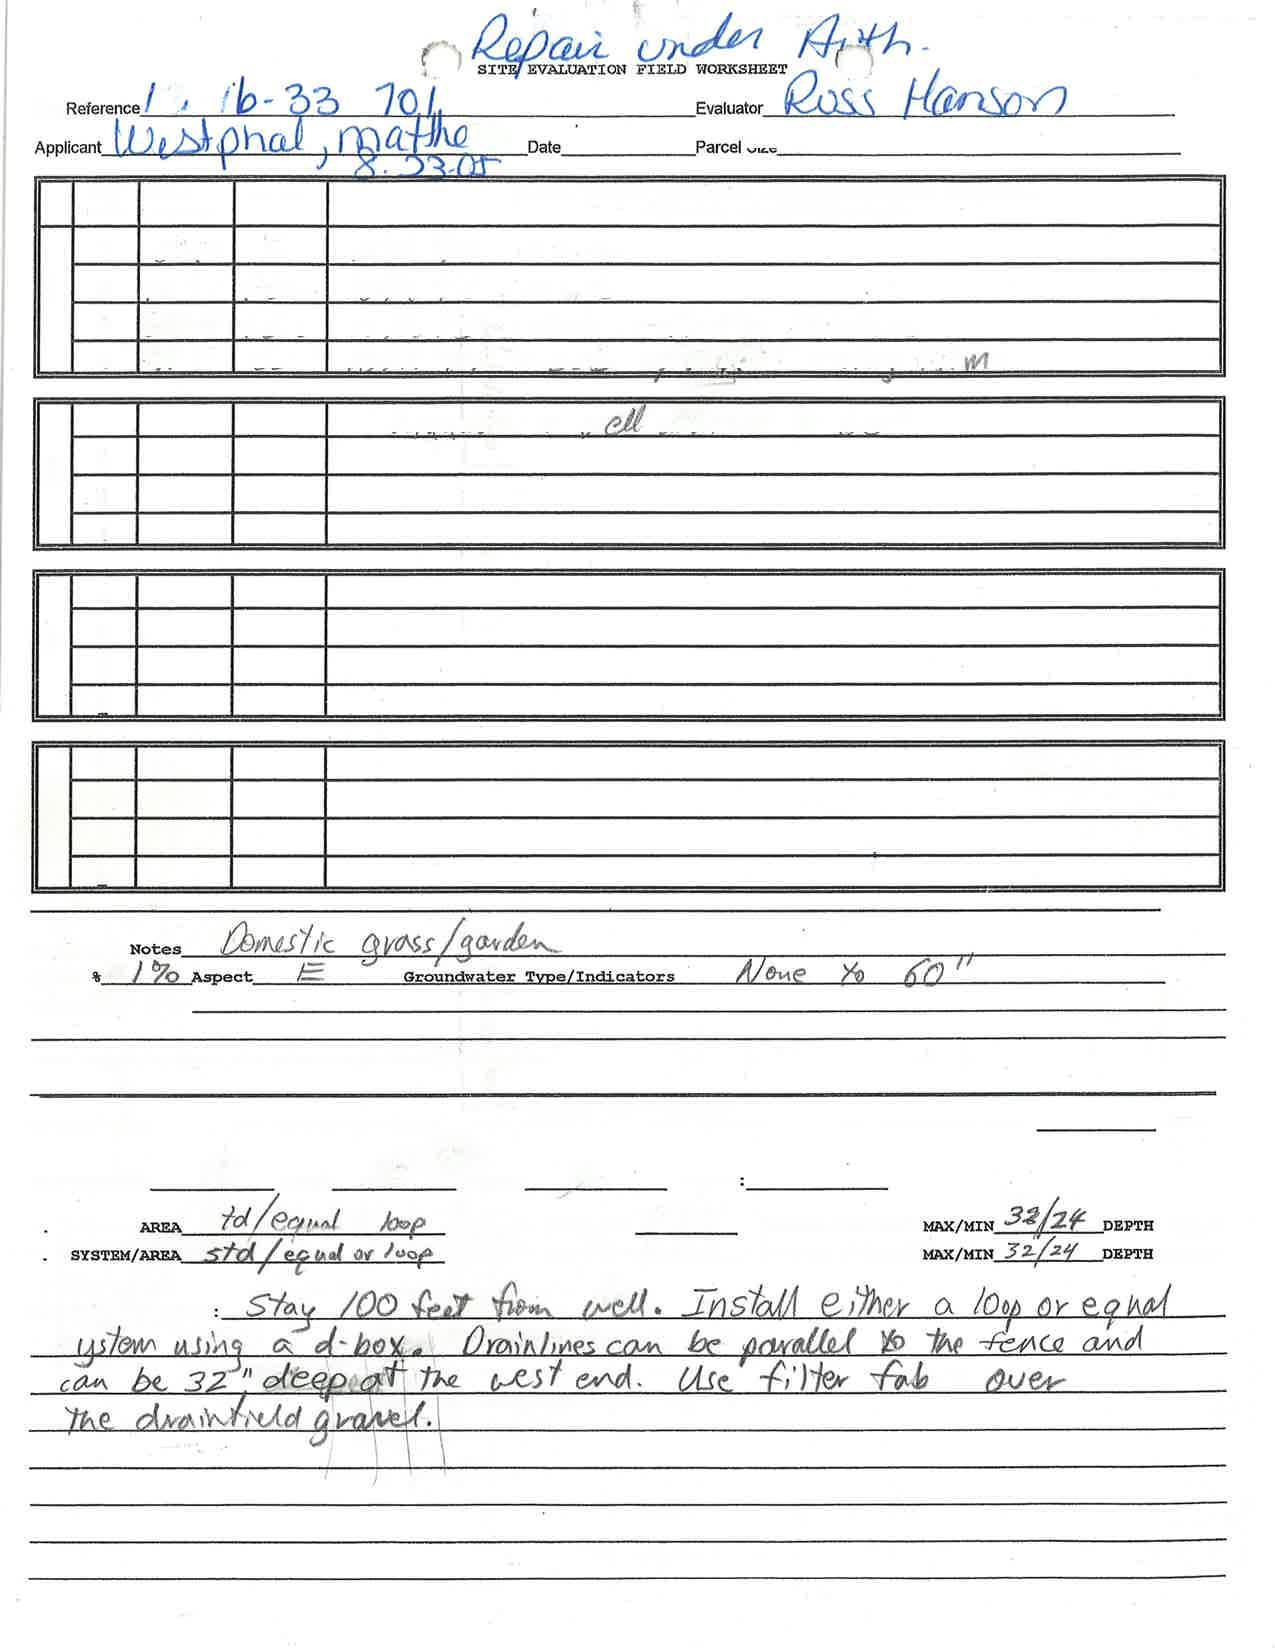 Repair under Auth.
SITE EVALUATION FIELD WORKSHEET
Reference 16-33 701 Evaluator Ross Hanson
Applicant Westphal, Matthe Date Parcel
8.23.05
m
ell
Notes Domestic grass/garden
% 1% Aspect E Groundwater Type/Indicators None to 60"
:
. AREA td/equal loop MAX/MIN 32/24 DEPTH
. SYSTEM/AREA std/equal or loop MAX/MIN 32/24 DEPTH
: Stay 100 feet from well. Install either a loop or equal
ystem using a d-box. Drainlines can be parallel to the fence and
can be 32" deep at the west end. Use filter fab over
the drainfield gravel.